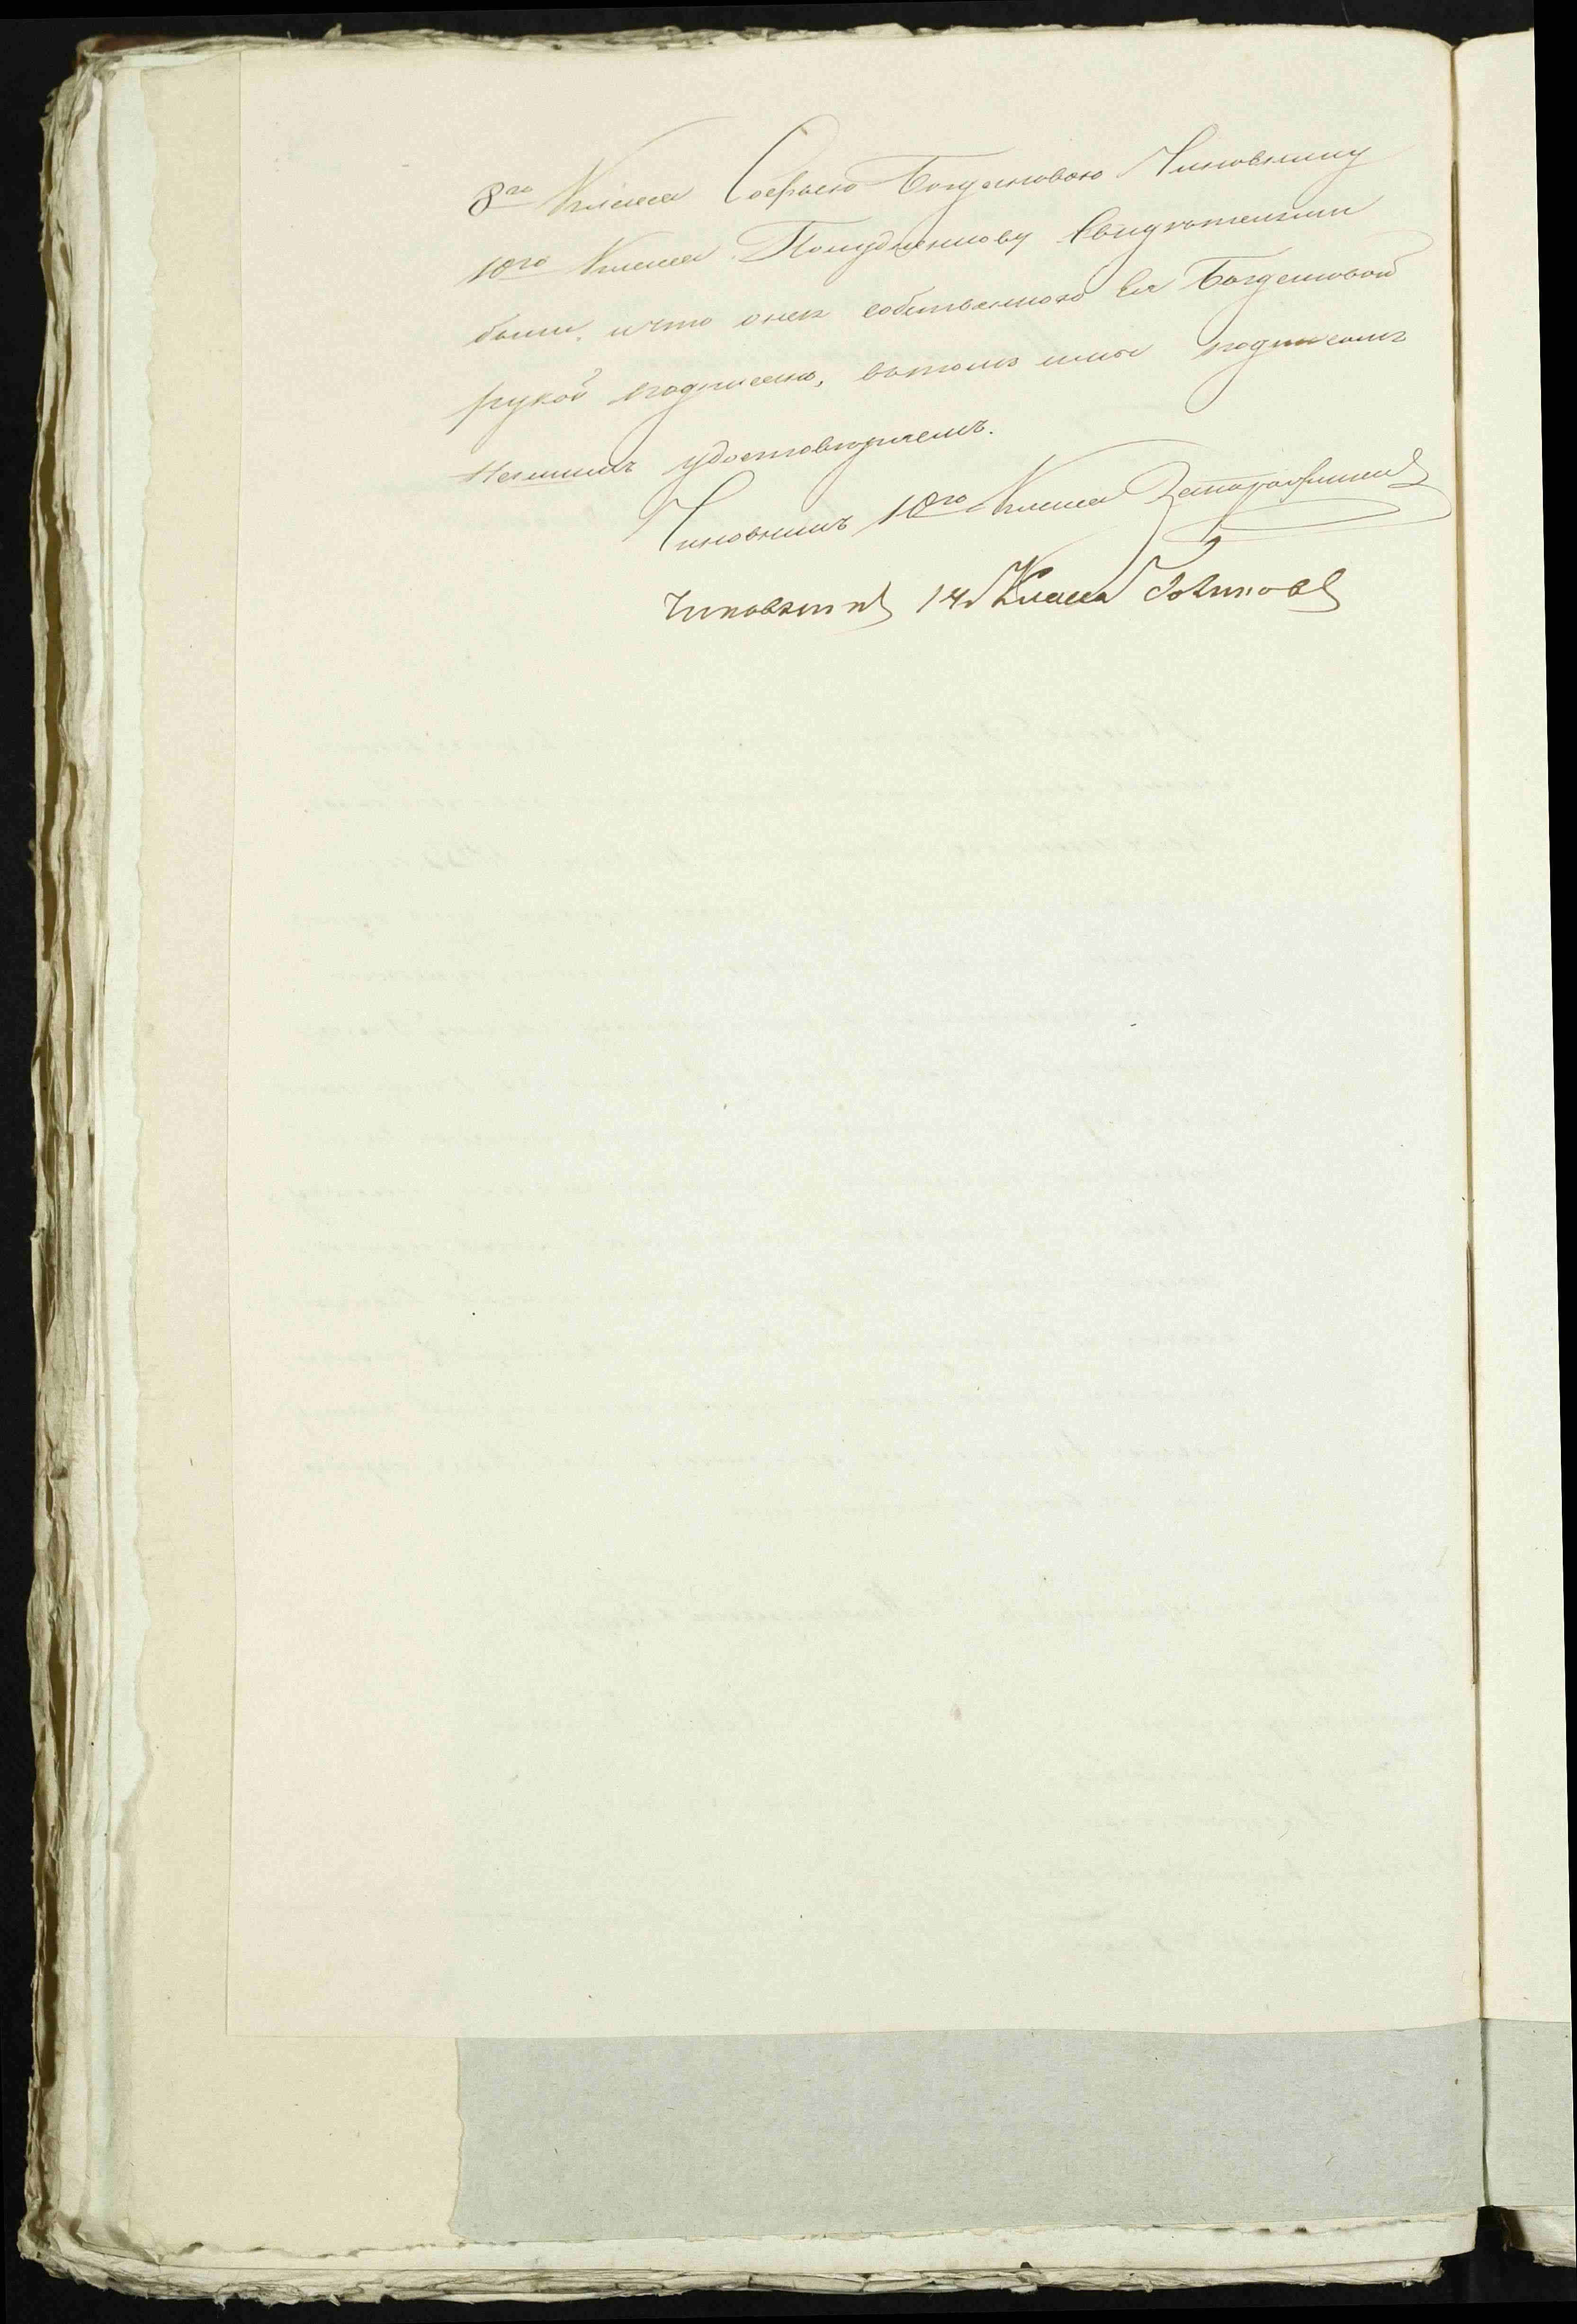 8го Класса Софьею Богдановою Чиновнику
10го Класса Полуденкову Свидетелями
были, ичто онап собственною Ея Богдановой
рукой подписано, вътомъ имы подписомъ
Нашимъ удостоверяемъ.
Чиновникъ 10го Класса
Чиновникъ 14 Класса Новиковъ